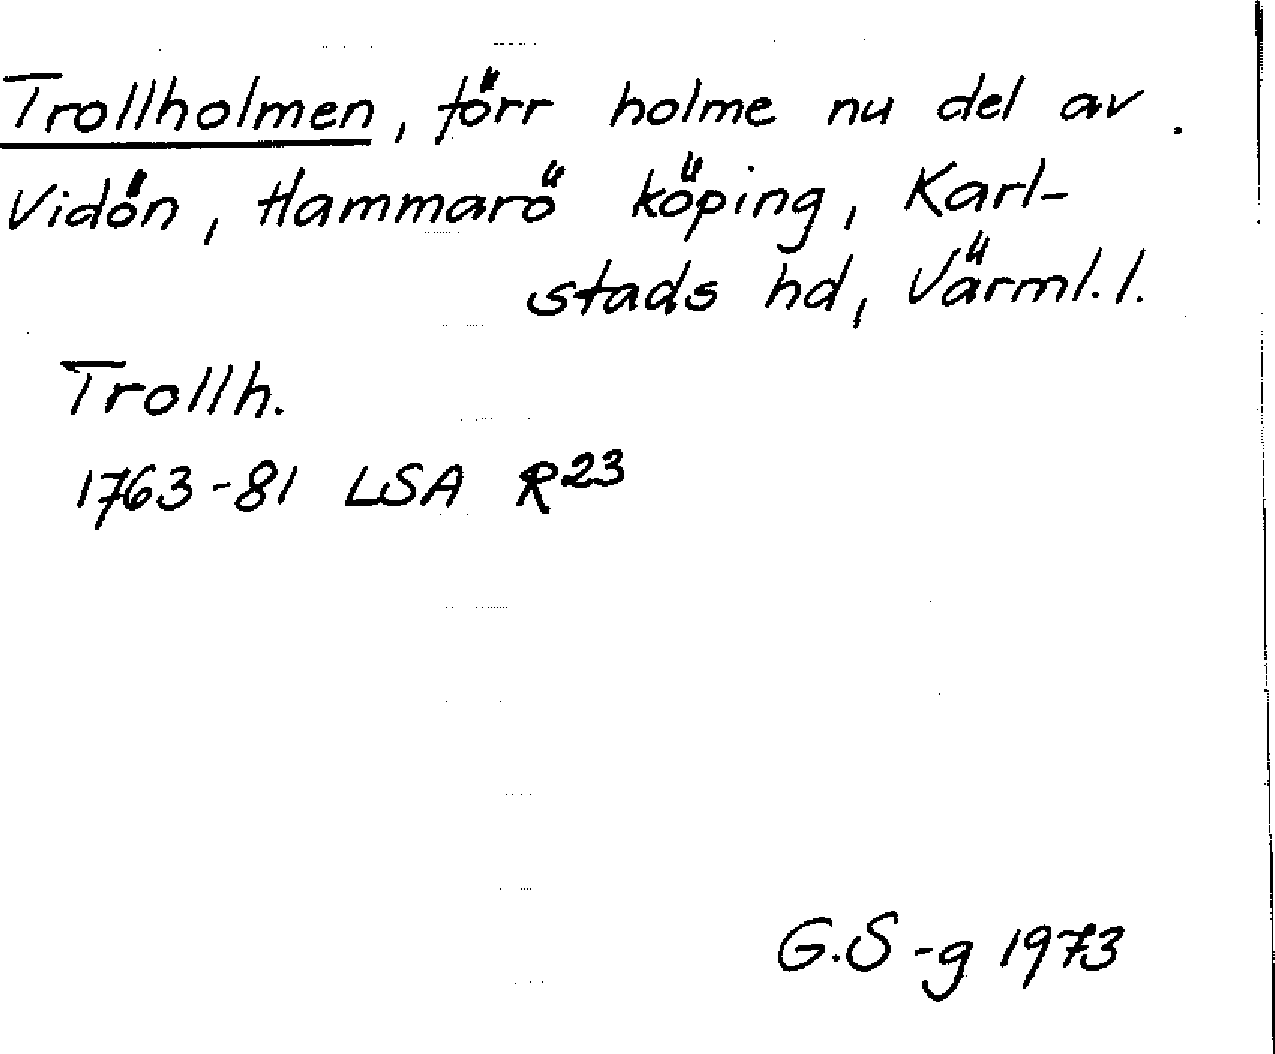 Trollholmen, förr holme nu del av
Vidön, Hammarö köping, Karl-
stads hd, Värml. l.
Trollh.
1763-81 LSA R23
G.S-g 1973